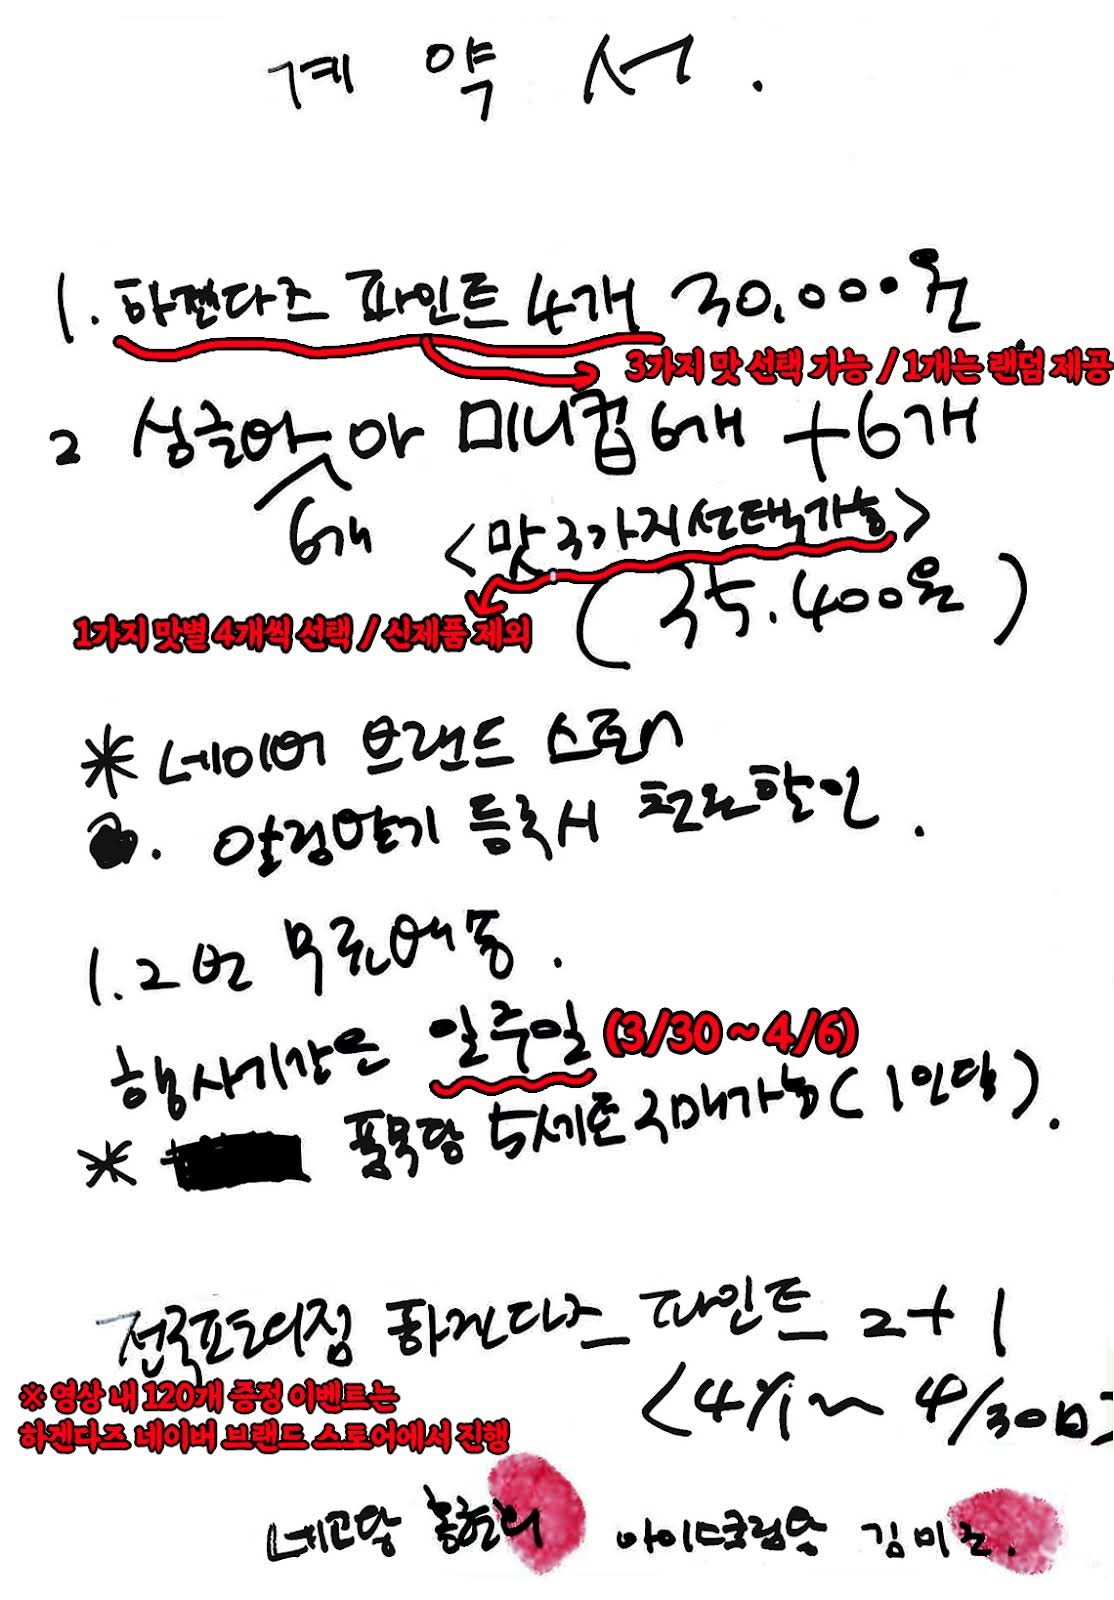 계 약 서.
1. 하겐다즈 파인트 4개 30,000원
3가지 맛 선택 가능 / 1개는 랜덤 제공
2 싱글바 와 미니컵 6개 + 6개
6개
<맛 3가지 선택가능>
(35.400원)
1가지 맛별 4개씩 선택 / 신제품 제외
* 네이버 브랜드 스토어
. 알림받기 등록시 천원할인.
1.2번 무료배송.
행사기간은 일주일 (3/30 ~ 4/6)
* 품목당 5세트 구매가능 (1인당).
전국편의점 하겐다즈 파인트 2+1
<4/1 ~ 4/30일>
※ 영상 내 120개 증정 이벤트는
하겐다즈 네이버 브랜드 스토어에서 진행
네고왕 홍현희 아이스크림왕 김미조.